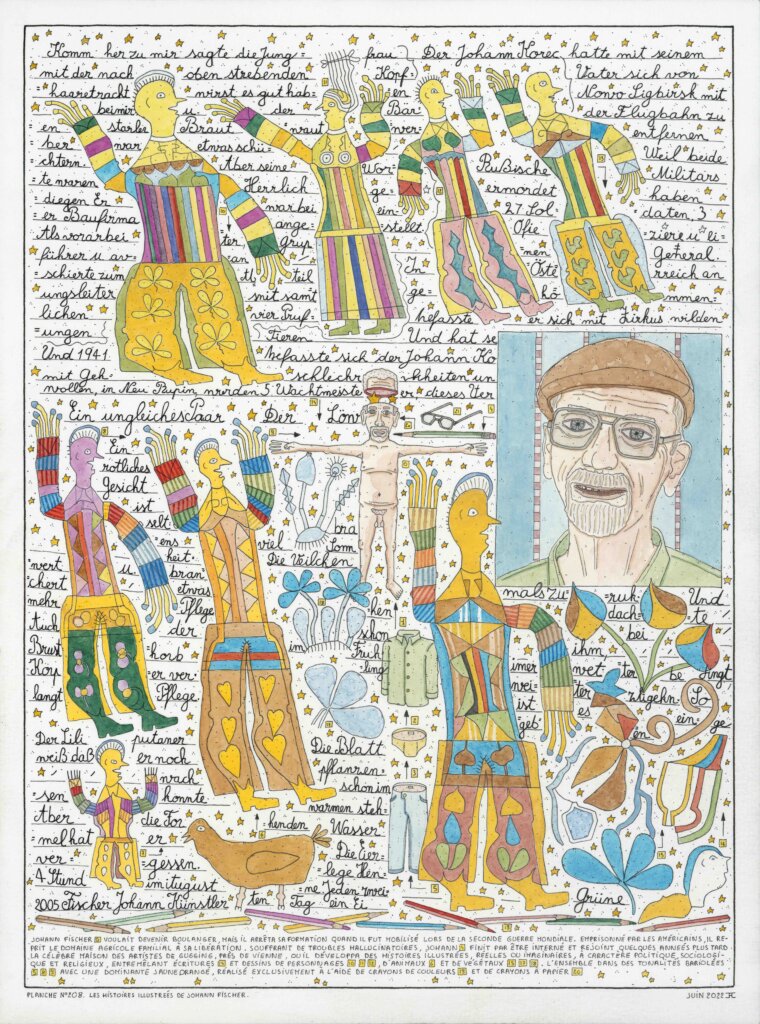 Komm her zu mir sagte die Jung= frau Der Johann Korec hatte mit seinem
mit der nach oben strebenden Kopf= Vater sich von
=haaretracht wirst es gut hab= en Nowo Sigbirsk mit
bei mir u der Bär= der Flugbahn zu
en starke Braut =naut =ver= entfernen
ber war etwas schü= Weil beide
chtern Aber seine Wor= Rußische Militärs
te waren Herrlich ge= ermordet haben
diegen Er war bei ein 27 Sol= daten, 3
er Baufirma ange= stellt Ofie =ziere u 1i=
Als vorarbei =ter= General
führer u In nen rreich an
schierte zum teil Öste
ungsleiter mit samt ge= kö mmen=
lichen vier Prüf= befasste er sich mit Zirkus wilden
ungen Tieren Und hat se
Und 1941 befasste sich der Johann Ko
mit Geh= schlechr= kheiten un
wollen, in Neu Rupin, werden 5 Wachtmeiste er dieses Ver
Ein ungleiches Paar Der Löw
Ein
rötliches
Gesicht
ist
selt= ens viel bra=
wert u heit Som
chert bran= Die Veilchen mals zu =ruk= Und
mehr etwas hen dach= te
Auch Pflege schon bei
Brust der im Früh ihm
Korp =korb ling imer wet= ter be dingt
langt er ver= wei= ter So
Pflege ist es ein= ge
geb= en
Der Lili putaner Die Blatt
weiß daß er noch pflanzen=
nach schön im
sen konnte warmen steh=
Aber die Tor henden Wasser=
mel hat er Die Eier=
ver= gessen lege Hen=
4 Stund im August ne Jeden zwei=
2005 etischer Johann Künstler ten Tag ein Ei Grüne
JOHANN FISCHER 1 VOULAIT DEVENIR BOULANGER, MAIS IL ARRÊTA SA FORMATION QUAND IL FUT MOBILISÉ LORS DE LA SECONDE GUERRE MONDIALE. EMPRISONNÉ PAR LES AMÉRICAINS, IL RE-
PRIT LE DOMAINE AGRICOLE FAMILIAL À SA LIBÉRATION. SOUFFRANT DE TROUBLES HALLUCINATOIRES, JOHANN FINIT PAR ÊTRE INTERNÉ ET REJOINT QUELQUES ANNÉES PLUS TARD
LA CÉLÈBRE MAISON DES ARTISTES DE GUGGING, PRÈS DE VIENNE, OÙ IL DÉVELOPPA DES HISTOIRES ILLUSTRÉES, RÉELLES OU IMAGINAIRES, À CARACTÈRE POLITIQUE, SOCIOLOGI-
QUE ET RELIGIEUX, ENTREMÊLANT ÉCRITURES ET DESSINS DE PERSONNAGES, D'ANIMAUX ET DE VÉGÉTAUX. L'ENSEMBLE DANS DES TONALITÉS BARIOLÉES
AVEC UNE DOMINANTE JAUNE ORANGÉ, RÉALISÉ EXCLUSIVEMENT À L'AIDE DE CRAYONS DE COULEURS ET DE CRAYONS À PAPIER
PLANCHE N°208. LES HISTOIRES ILLUSTRÉES DE JOHANN FISCHER. JUIN 2022